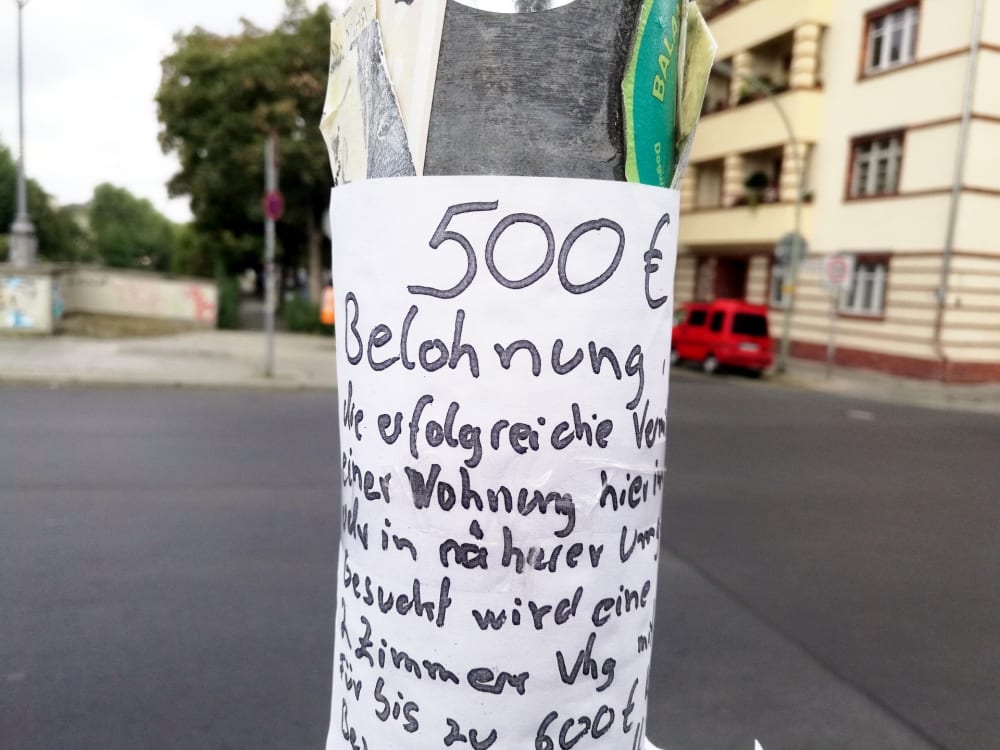 BALZ
500 €
Belohnung
die erfolgreiche Verm
einer Wohnung hier in
oder in näherer Umg
besucht wird eine
2 Zimmer Whg mi
für bis zu 600 €
Be